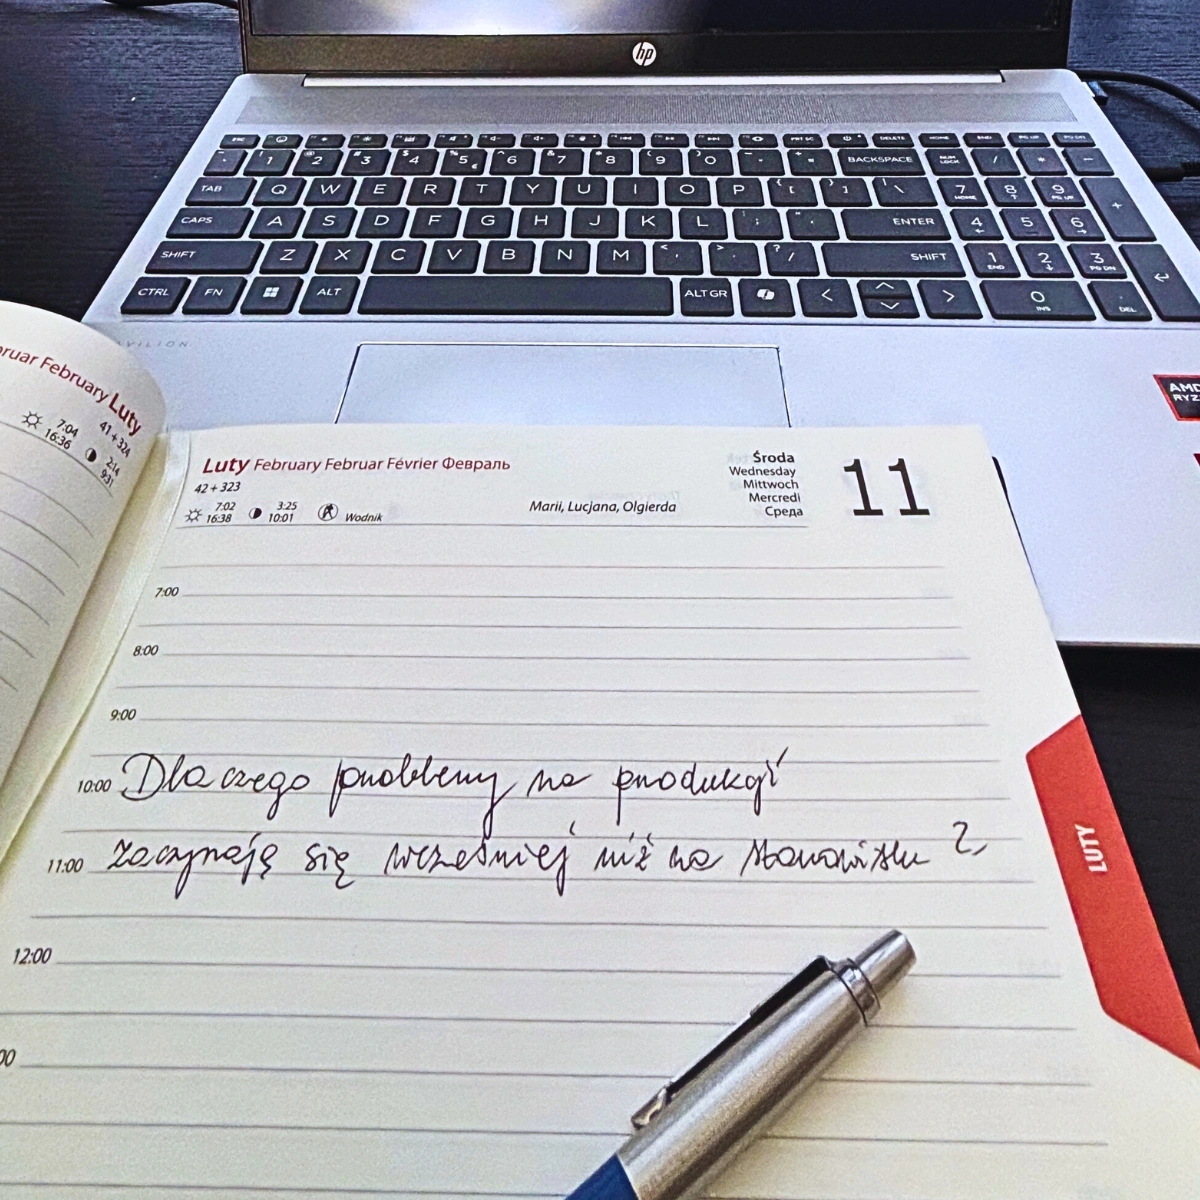 hp
ESC PRT SC DELETE HOME END PG UP PG DN
~ ` ! 1 @ 2 # 3 $ 4 % 5 € ^ 6 & 7 * 8 ( 9 ) 0 _ - + = BACKSPACE NUM LOCK / * -
TAB Q W E R T Y U I O P { [ } ] | \ 7 HOME 8 9 PG UP +
CAPS A S D F G H J K L : ; " ' ENTER 4 5 6
SHIFT Z X C V B N M < , > . ? / SHIFT 1 END 2 3 PG DN
CTRL FN ALT ALT GR 0 INS . DEL
AVILION
AMD
RYZ
ruar February Luty
7:04 41+324
16:36 2:14
9:31
Luty February Februar Février Февраль
42+323
7:02 3:25
16:38 10:01 Wodnik
Marii, Lucjana, Olgierda
Środa
Wednesday
Mittwoch
Mercredi
Среда
11
7:00
8:00
9:00
10:00 Dlaczego problemy na produkcji
11:00 zaczynają się wcześniej niż na stanowisku?
12:00
00
LUTY